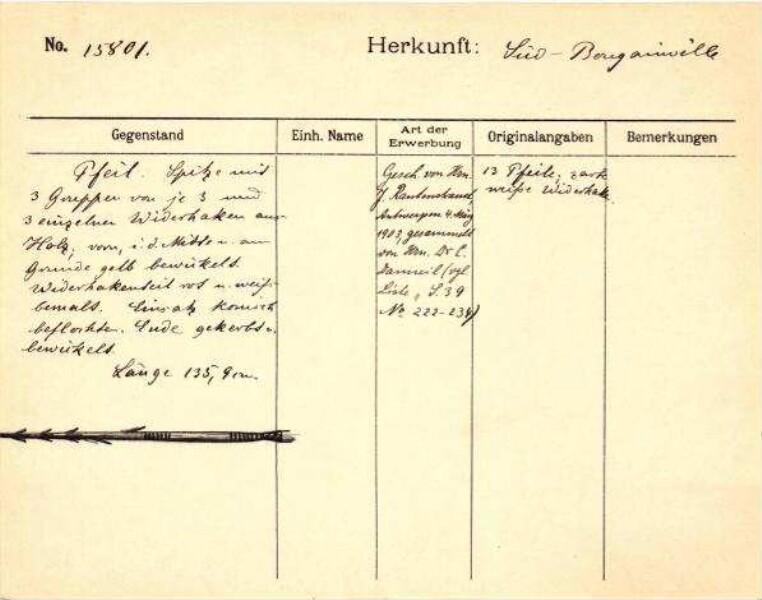 No. 15801. Herkunft: Süd-Bougainville
Gegenstand Einh. Name Art der Erwerbung Originalangaben Bemerkungen
Pfeil. Spitze mit
3 Gruppen von je 3 und
3 einzelnen Widerhaken aus
Holz, vorn, i. d. Mitte u. am
Grunde gelb bewickelt.
Widerhakenteil rot u. weiß
bemalt. Einsatz konisch
beflochten. Ende gekerbt u.
bewickelt.
Länge 135,9 cm.
Gesch. von Hrn.
J. Rautenstrauch,
Antwerpen 4. März
1903, gesammelt
von Hrn. Dr C.
Danneil (vgl
Liste, S. 39
No 222-234)
13 Pfeile,
weiße Widerhak.